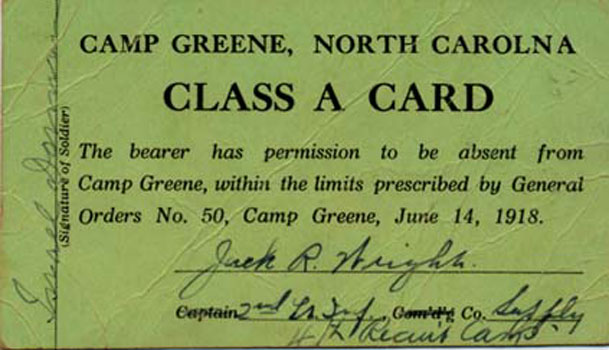 CAMP GREENE, NORTH CAROLNA
CLASS A CARD
The bearer has permission to be absent from
Camp Greene, within the limits prescribed by General
Orders No. 50, Camp Greene, June 14, 1918.
Jack R. Wright.
Captain 2nd Lt. Inf., Com'd'g Co. Supply
Camp
(Signature of Soldier)